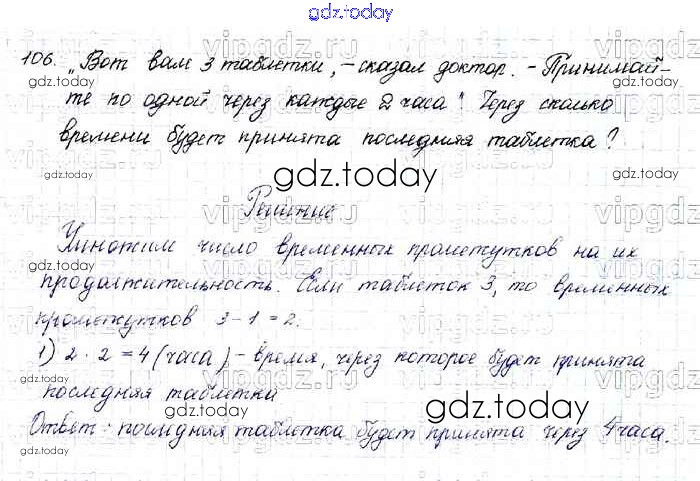 gdz.today
106. „Вот вам 3 таблетки, – сказал доктор. – Принимай-
те по одной через каждые 2 часа". Через сколько
времени будет принята последняя таблетка?
gdz.today
Решение
Умножим число временных промежутков на их
gdz.today
продолжительность. Если таблеток 3, то временных
промежутков 3 – 1 = 2.
1) 2 · 2 = 4 (часа) – время, через которое будет принята
последняя таблетка
gdz.today
gdz.today
Ответ: последняя таблетка будет принята через 4 часа.